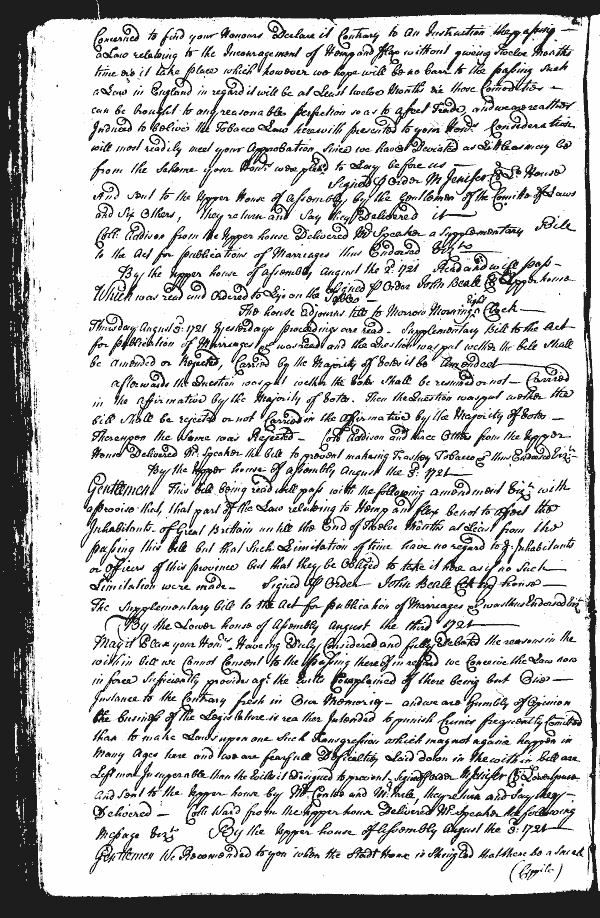 Concerned to find your Honours declare it Contrary to An Instruction they passing
a Law relating to the Incouragement of Hemp and Flax without giveing Twelve Months
time ere it take place which however we hope will be no Barr to the passing such
a Law in England in regard it will be at Least twelve Months ere those Comodities
can be brought to any reasonable perfection so as to affect Trade, and we are rather
Induced to believe the Tobacco Law herewith presented to your Honrs. Consideration
will most readily meet your Approbation, since we have Deviated as Little as may be
from the Scheme your Honrs. were pleased to Lay before us
Signed p Order M. Jenifer Cl Lo House
And sent to the Upper House of Assembly by the Gentlemen of the Comitte of Laws
and Six Others, they return and Say they Delivered it
Coll. Addison from the Upper house Delivered Mr. Speaker a Supplementary Bill
to the Act for publications of Marriages thus Endorsed Vizt.
By the upper house of assembly August the 2d. 1721 Read and will pass
Signed p Order John Beale Cl Upper house
Which was read and Ordered to Ly on the Table
The house adjourns till to Morrow Morning Eight Clock
Thursday August 3d. 1721 Yesterdays proceedings are read. Supplementary Bill to the Act
for publication of Marriages &c was read and the Question was put wether the bill Shall
be amended or Rejected, Carried by the Majority of Votes it be amended
afterwards the Question was put wether the Vote Shall be resumed or not Carried
in the affirmative by the Majority of Votes. Then the Question was put wether the
bill Shall be rejected or not Carried in the affirmative by the Majority of Votes
Thereupon the same was Rejected Coll. Addison and three Others from the Upper
House Delivered Mr. Speaker the bill to prevent makeing Trashey Tobacco &c thus Endorsed Vizt.
By the Upper house of assembly August the 3d. 1721
Gentlemen This bill being read will pass with the following amendment Vizt. with
a proviso that, that part of the Law relating to Hemp and flax be not to affect the
Inhabitants of Great Brittain untill the End of Twelve Months at Least from the
passing this bill but that Such Limitation of time have no regard to ye. Inhabitants
or Officers of this province but that they be Obliged to take it here as if no Such
Limitation were made. Signed p Order John Beale Cl up house
The Supplementary bill to the Act for publication of Marriages &c was thus Endorsed Vizt.
By the Lower house of Assembly August the third 1721
May it Please your Honrs. Having Duly Considered and fully Debated the reasons in the
within bill we Cannot Consent to the passing thereof in regard we Conceive the Law now
in force Suficiently provides agt. the Evills Complained of there being but One
Instance to the Contrary fresh in Our Memories and we are humbly of Opinion
the business of the Legislature is rather Intended to punish Crimes frequently Comitted
than to make Laws upon one Such Transgression which may not againe happen in
Many Ages here and we are fearfull Dificultys Laid down in the within bill are
Left more Insuperable than the Evills it designed to prevent. Signed p order M Jenifer Cl Lower house
and sent to the Upper house by Mr. Contee and Mr. Hall, they return and Say they
Delivered Coll. Ward from the upper house Delivered Mr. Speaker the following
Message Vizt. By the Upper house of Assembly August the 3d. 1721
Gentlemen We Recomended to you when the Stadt House is Shingled that there be a Small
(Cyppilo)